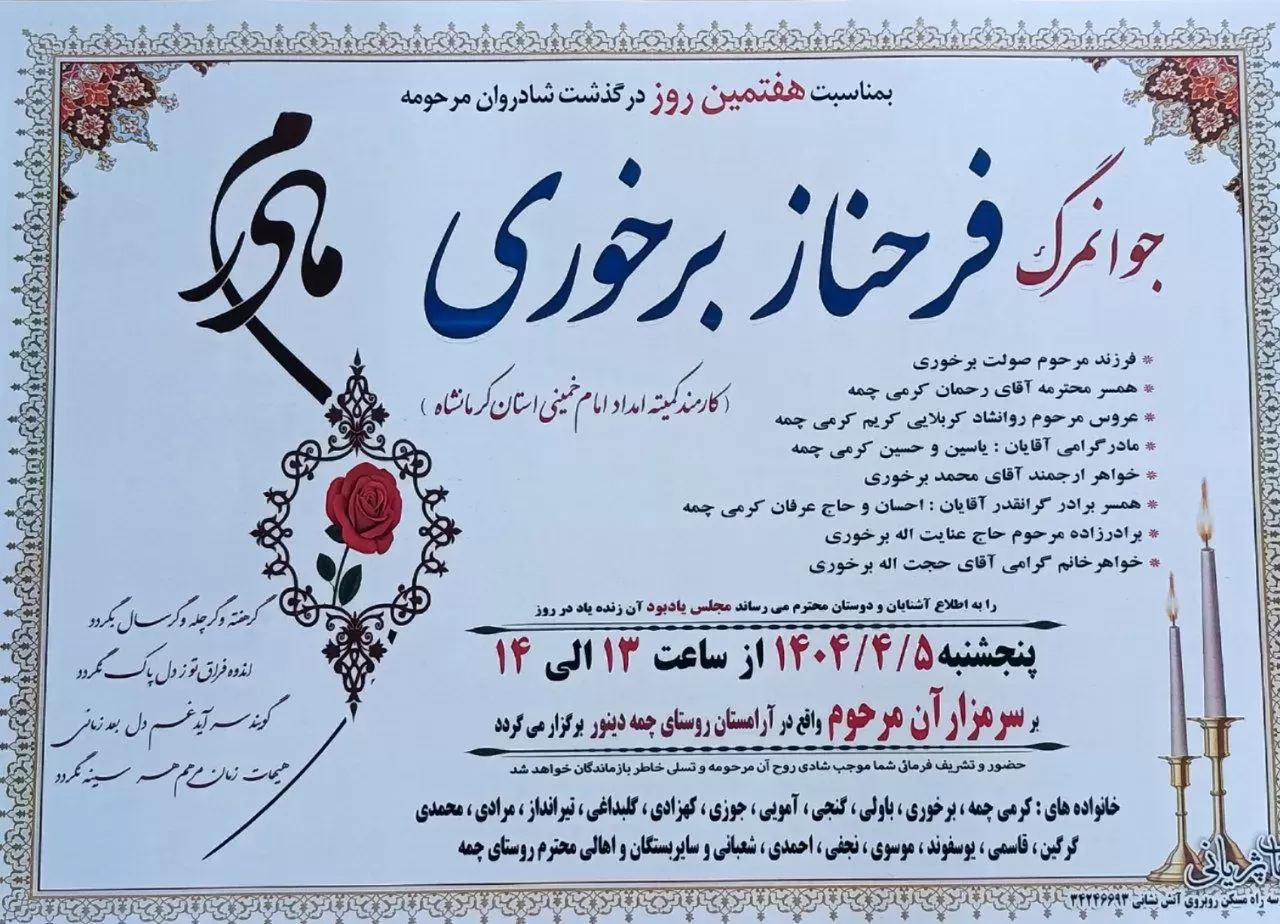 بمناسبت هفتمین روز درگذشت شادروان مرحومه
جوانمرگ فرحناز برخوری
مادرم
* فرزند مرحوم صولت برخوری
* همسر محترمه آقای رحمان کرمی چمه
(کارمند کمیته امداد امام خمینی استان کرمانشاه)
* عروس مرحوم روانشاد کربلایی کریم کرمی چمه
* مادرگرامی آقایان : یاسین و حسین کرمی چمه
* خواهر ارجمند آقای محمد برخوری
* همسر برادر گرانقدر آقایان : احسان و حاج عرفان کرمی چمه
* برادرزاده مرحوم حاج عنایت اله برخوری
* خواهرخانم گرامی آقای حجت اله برخوری
گر هفته و گر چله و گر سال بگردد
اندوه فراق تو ز دل پاک نگردد
گویند سر آید غم دل بعد زمانی
هیهات زمان مرهم هر سینه نگردد
را به اطلاع آشنایان و دوستان محترم می رساند مجلس یادبود آن زنده یاد در روز
پنجشنبه ۱۴۰۴/۴/۵ از ساعت ۱۳ الی ۱۴
بر سرمزار آن مرحوم واقع در آرامستان روستای چمه دینور برگزار می گردد
حضور و تشریف فرمائی شما موجب شادی روح آن مرحومه و تسلی خاطر بازماندگان خواهد شد
خانواده های : کرمی چمه ، برخوری ، باولی ، گنجی ، آمویی ، جوزی ، کهزادی ، گلبداغی ، تیرانداز ، مرادی ، محمدی
گرگین ، قاسمی ، یوسفوند ، موسوی ، نجفی ، احمدی ، شعبانی و سایربستگان و اهالی محترم روستای چمه
راه مسکن روبروی آتش نشانی ۳۴۲۴۶۶۹۳